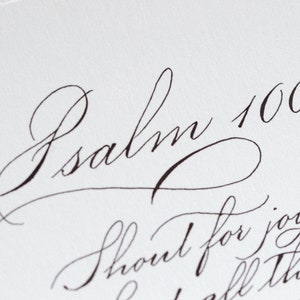 Psalm 100
Shout for joy
all th